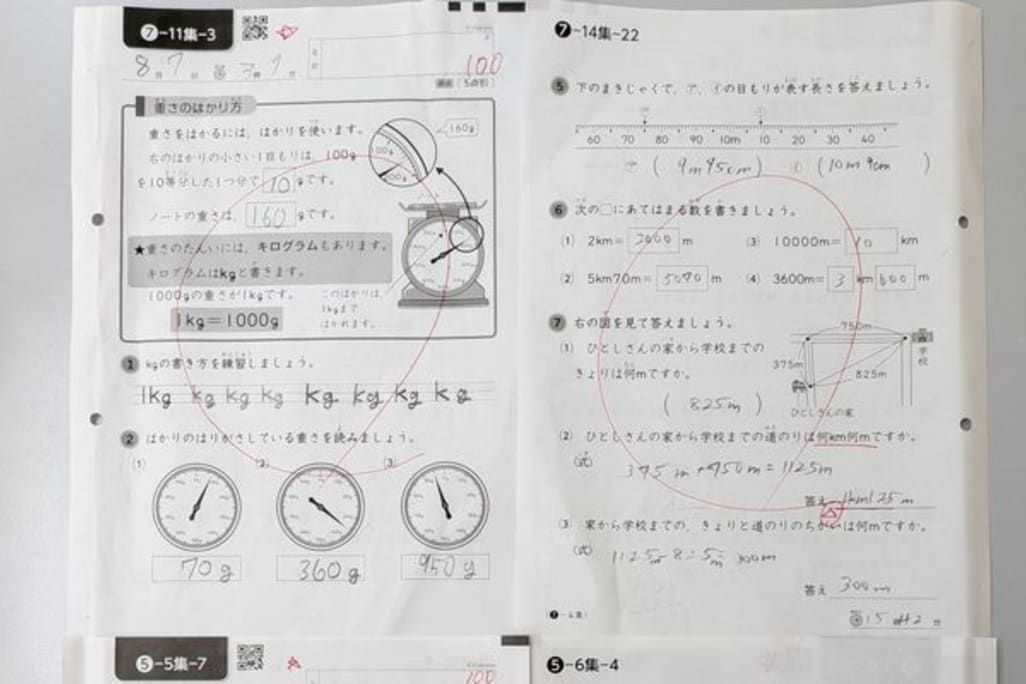 7-11集-3
8月7日
100
重さのはかり方
重さをはかるには、はかりを使います。
右のはかりの小さい1目もりは、100g
を10等分した1つ分で 10 gです。
ノートの重さは、160 gです。
160g
100g
200g
ノート
★重さのたんいには、キログラムもあります。
キログラムはkgと書きます。
1000gの重さが1kgです。
1kg=1000g
このはかりは、
1kgまで
はかれます。
1 kgの書き方を練習しましょう。
1kg kg kg kg kg kg kg kg
2 はかりのはりがさしている重さを読みましょう。
(1) (2) (3)
70g 360g 950g
5-5集-7
100
7-14集-22
5 下のまきじゃくで、㋐、㋑の目もりが表す長さを答えましょう。
60 70 80 90 10m 10 20 30 40
㋐ (9m75cm) ㋑ (10m9cm)
6 次の□にあてはまる数を書きましょう。
(1) 2km= 2000 m (3) 10000m= 10 km
(2) 5km70m= 5070 m (4) 3600m= 3 km 600 m
7 右の図を見て答えましょう。
(1) ひとしさんの家から学校までの
きょりは何mですか。
(825m)
750m
375m
825m
学校
ひとしさんの家
(2) ひとしさんの家から学校までの道のりは何km何mですか。
(式) 375m+750m=1125m
答え 1km125m
(3) 家から学校までの、きょりと道のりのちがいは何mですか。
(式) 1125m-825m=300m
答え 300m
5-6集-4